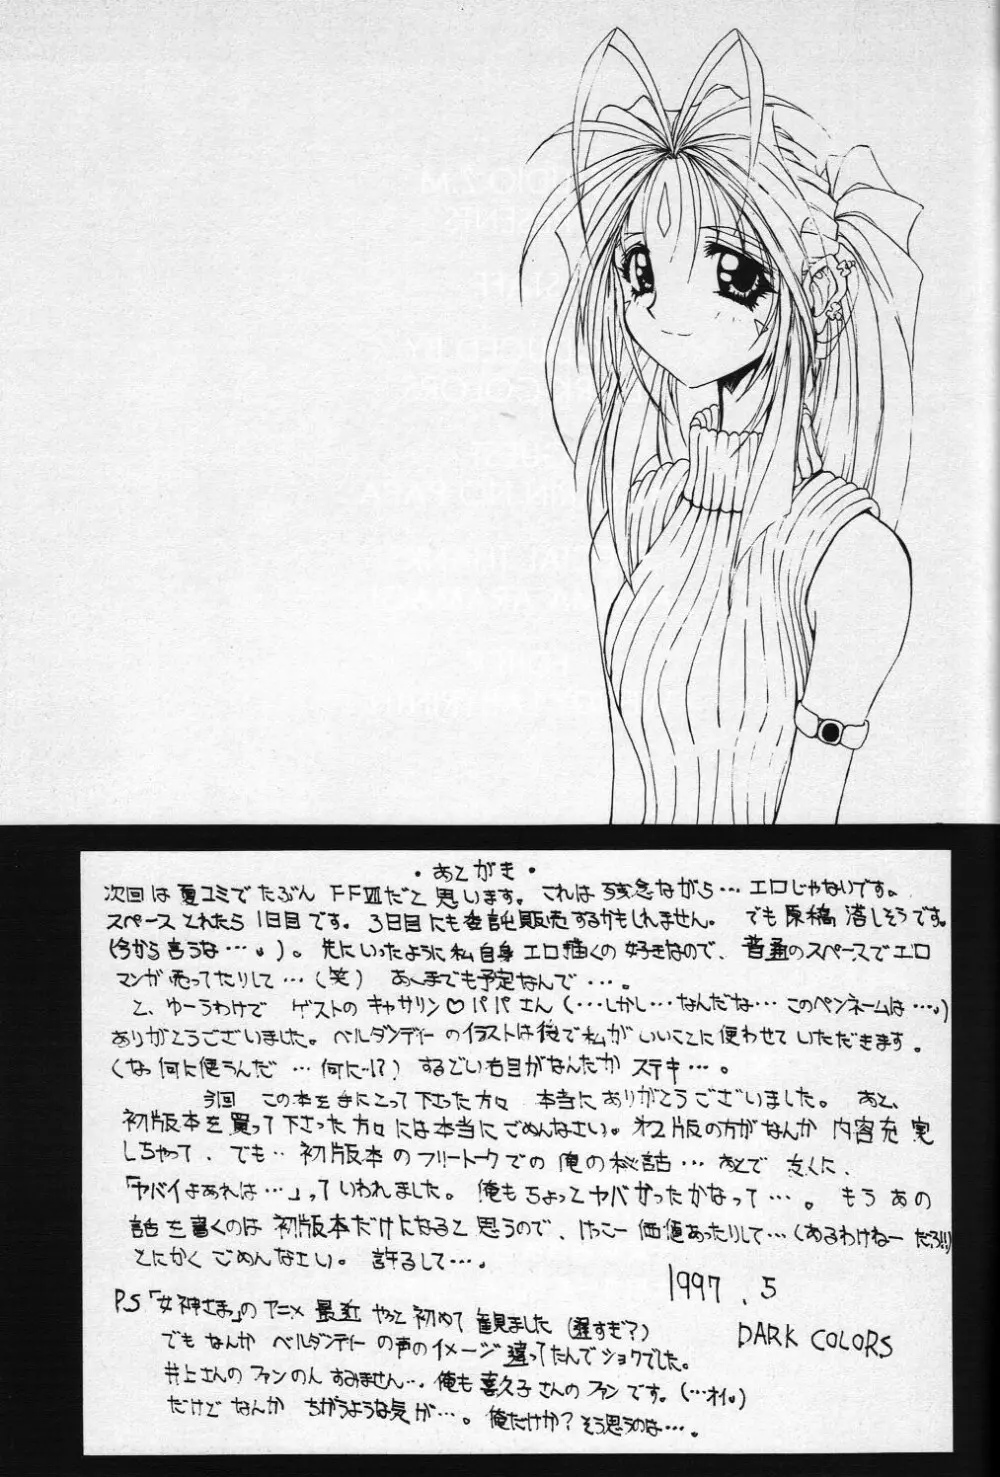 ・あとがき・
次回は夏コミでたぶん FFⅦだと思います。これは残念ながら…エロじゃないです。
スペースとれたら1日目です。3日目にも委託販売するかもしれません。でも原稿落しそうです。
(今から言うな…。)。先にいったように私自身エロ描くの好きなので、普通のスペースでエロ
マンガ売ってたりして…(笑) あくまでも予定なんで…。
と、ゆーうわけで ゲストのキャサリン♡パパさん(…しかし…なんだな…このペンネームは…。)
ありがとうございました。ベルダンディーのイラストは後で私がいいことに使わせていただきます。
(なっ何に使うんだ…何に…!?) するどい右目がなんだか ステキ…。
今回 この本を手にとって下さった方々 本当にありがとうございました。あと、
初版本を買って下さった方々には本当にごめんなさい。オフ版の方がなんか内容充実
しちゃって、でも… 初版本のフリートークでの俺の秘話…あとで友くに、
「ヤバイよあれは…」っていわれました。俺もちょっとヤバかったかなって…。もうあの
話を書くのは初版本だけになると思うので、けっこー価値あったりして…(あるわけねーだろ!!)
とにかくごめんなさい。許るして…。
1997.5
P.S「女神さまっ」のアニメ 最近 やっと初めて観ました(遅すぎ?)
DARK COLORS
でも なんか ベルダンディーの声のイメージ違ってたんでショクでした。
井上さんのファンのんすみません…。俺も喜久子さんのファンです。(…オイ。)
だけど なんか ちがうような気が…。俺だけか?そう思うのは…。